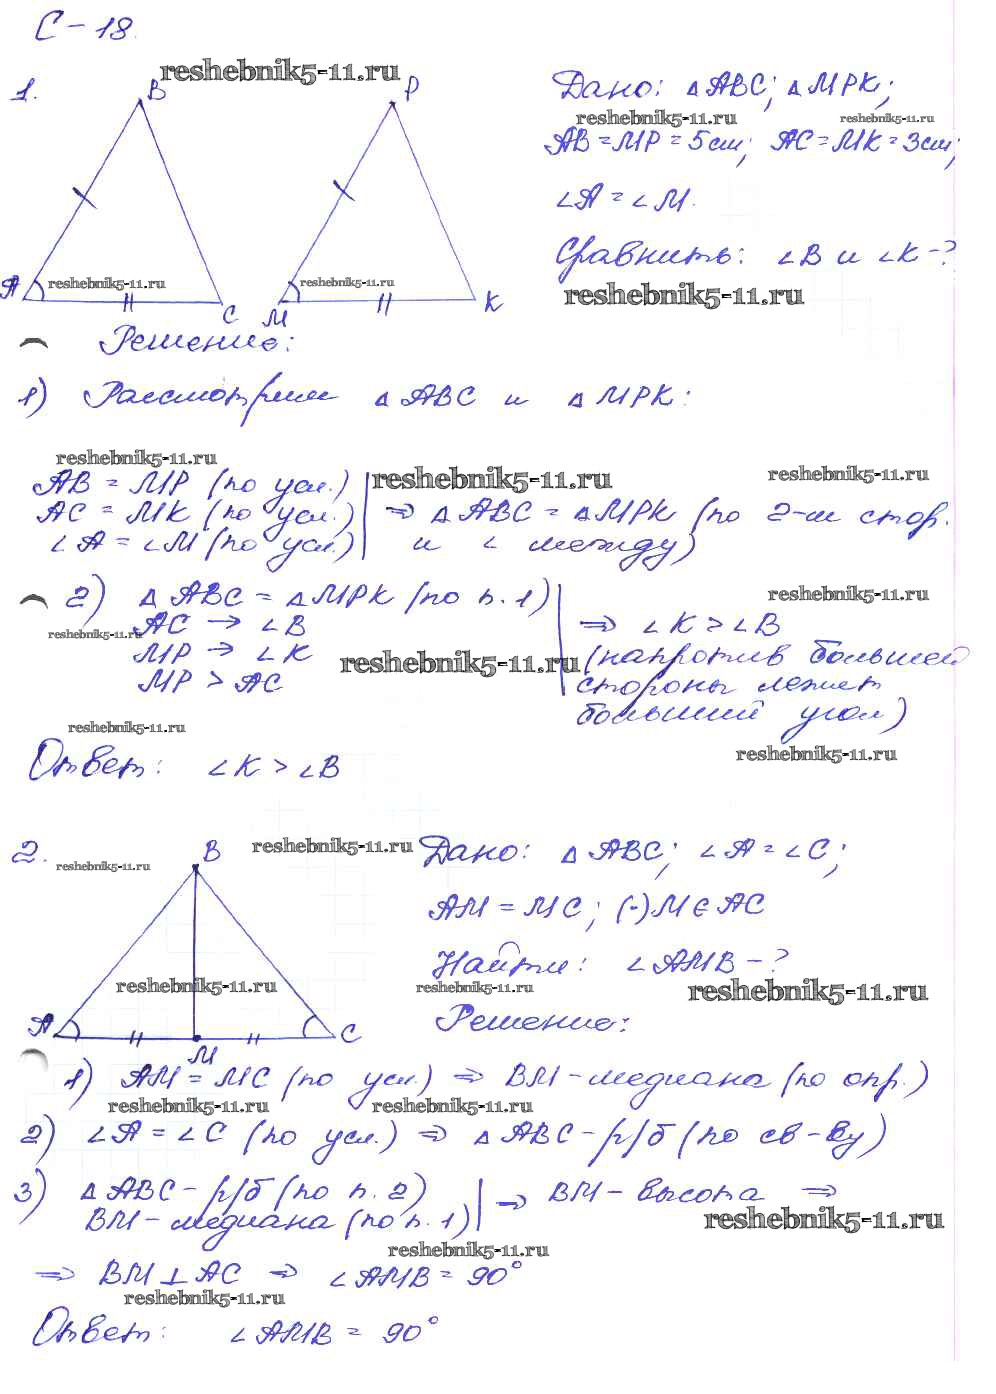 С-18.
reshebnik5-11.ru
1.
B
P
Дано: △ABC; △MPK;
reshebnik5-11.ru
reshebnik5-11.ru
AB=MP=5см; AC=MK=3см;
∠A=∠M.
Сравнить: ∠B и ∠K-?
A
reshebnik5-11.ru
reshebnik5-11.ru
reshebnik5-11.ru
C
M
K
Решение:
1) Рассмотрим △ABC и △MPK:
reshebnik5-11.ru
reshebnik5-11.ru
reshebnik5-11.ru
AB = MP (по усл.)
AC = MK (по усл.) ⇒ △ABC = △MPK (по 2-м стор.
∠A = ∠M (по усл.) и ∠ между)
2) △ABC = △MPK (по п.1)
reshebnik5-11.ru
AC → ∠B ⇒ ∠K > ∠B
reshebnik5-11.ru
MP → ∠K (напротив большей
reshebnik5-11.ru
MP > AC стороны лежит
больший угол)
reshebnik5-11.ru
reshebnik5-11.ru
Ответ: ∠K > ∠B
2.
B
reshebnik5-11.ru
reshebnik5-11.ru
Дано: △ABC; ∠A=∠C;
AM = MC; (·)M∈AC
Найти: ∠AMB-?
reshebnik5-11.ru
reshebnik5-11.ru
reshebnik5-11.ru
Решение:
A
C
M
1) AM = MC (по усл.) ⇒ BM-медиана (по опр.)
reshebnik5-11.ru
reshebnik5-11.ru
2) ∠A = ∠C (по усл.) ⇒ △ABC-р/б (по св-ву)
3) △ABC-р/б (по п.2) ⇒ BM-высота ⇒
BM-медиана (по п.1)
reshebnik5-11.ru
reshebnik5-11.ru
⇒ BM⊥AC ⇒ ∠AMB = 90°
reshebnik5-11.ru
Ответ: ∠AMB = 90°